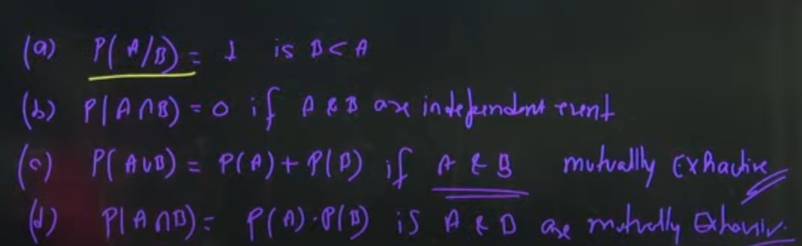 (a) P(A/B) = 1 is B < A
(b) P(A∩B) = 0 if A & B are independent event
(c) P(A∪B) = P(A) + P(B) if A & B mutually Exhactive
(d) P(A∩B) = P(A)·P(B) is A & B are mutually